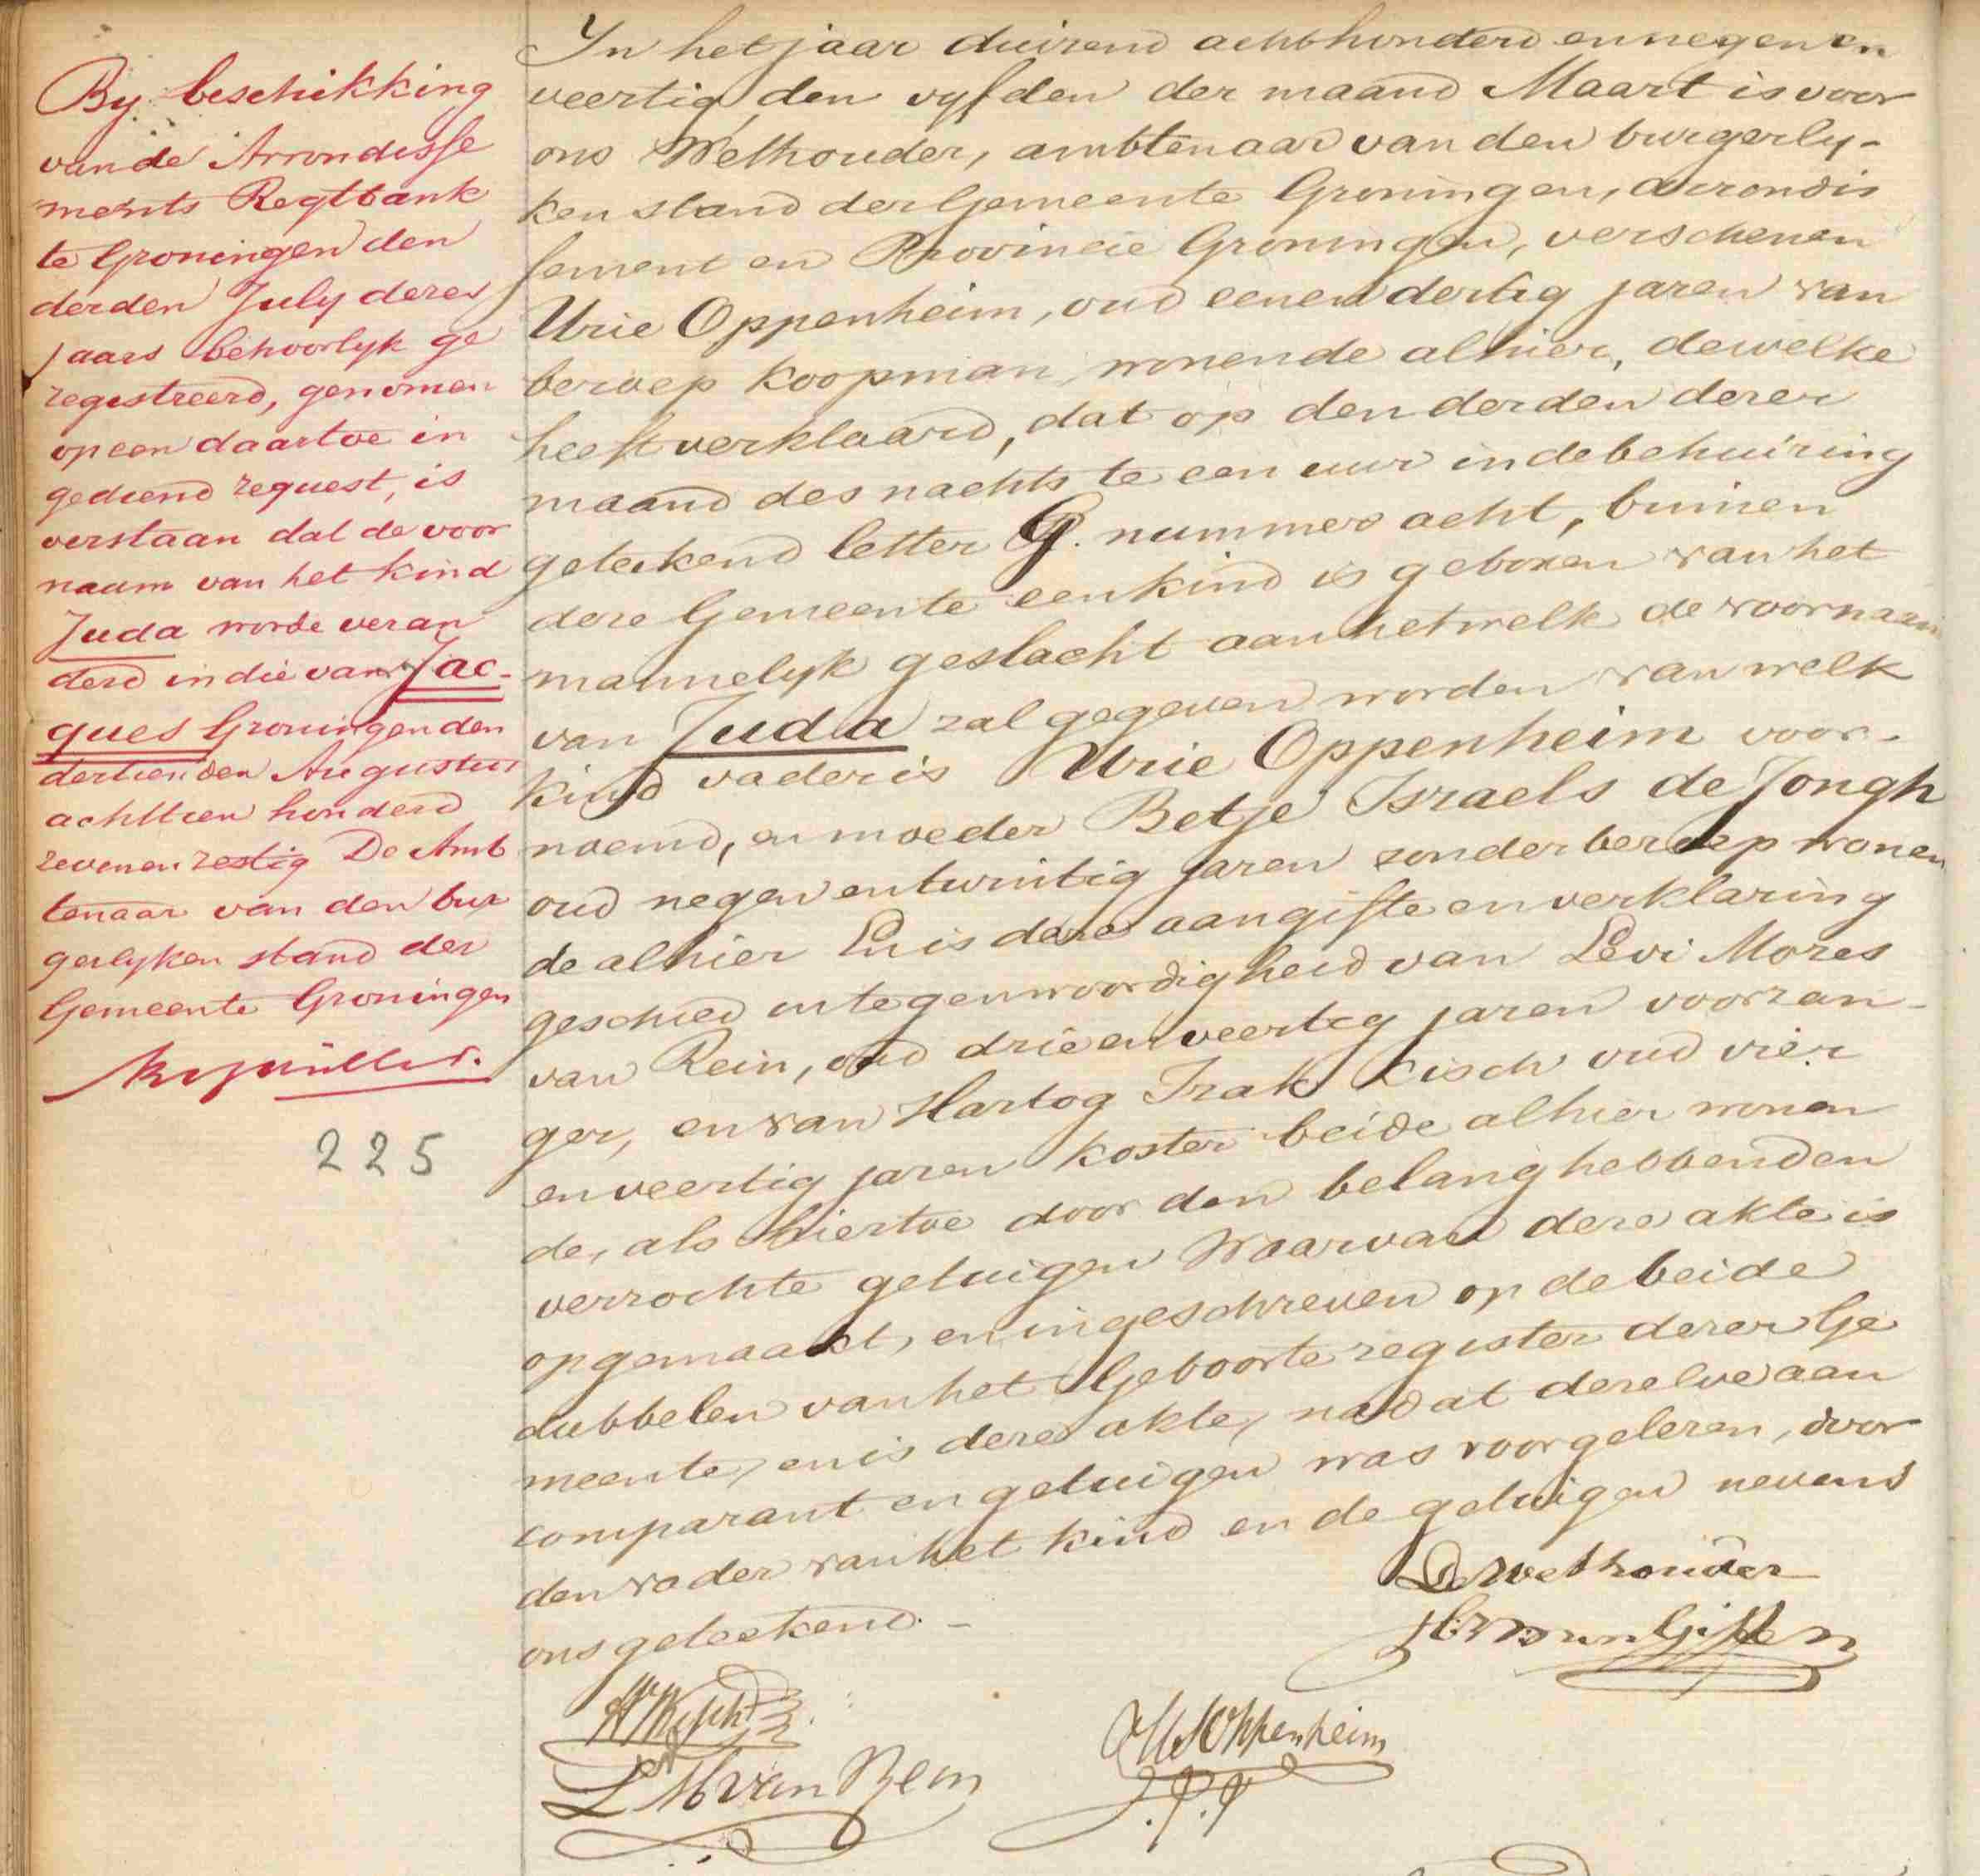 By beschikking
van de Arrondisse
ments Regtbank
te Groningen den
derden July dezes
jaars behoorlyk ge
registreerd, genomen
op een daartoe in
gediend request, is
verstaan dat de voor
naam van het kind
Juda worde veran
derd in die van Jac-
ques Groningen den
dertienden Augustus
achttien honderd
zevenen zestig De Amb
tenaar van den bur
gerlyken stand der
Gemeente Groningen
225
In het jaar duizend achthonderd en negen en
veertig, den vyfden der maand Maart is voor
ons Wethouder, ambtenaar van den burgerly-
ken stand der Gemeente Groningen, arrondis
sement en Provincie Groningen, verschenen
Urie Oppenheim, oud eenendertig jaren van
beroep koopman, wonende alhier, dewelke
heeft verklaard, dat op den derden dezer
maand des nachts te een uur in de behuizing
geteekend letter G. nummer acht, binnen
deze Gemeente een kind is geboren van het
mannelyk geslacht aan hetwelk de voornaam
van Juda zal gegeven worden van welk
kind vader is Urie Oppenheim voor-
noemd, en moeder Betje Israels de Jongh
oud negen en twintig jaren zonder beroep wonen
de alhier En is deze aangifte en verklaring
geschied in tegenwoordigheid van Levi Mozes
van Rein, oud drie en veertig jaren voorzan-
ger, en van Hartog Izak Kisch oud vier
en veertig jaren koster beide alhier wonen
de, als hiertoe door den belanghebbenden
verzochte getuigen Waarvan deze akte is
opgemaakt, en ingeschreven op de beide
dubbelen van het Geboorte register dezer Ge
meente, en is deze akte, nadat dezelve aan
comparant en getuigen was voorgelezen, door
den vader van het kind en de getuigen nevens
ons geteekend. -
De Wethouder
L M van Rein
Oppenheim